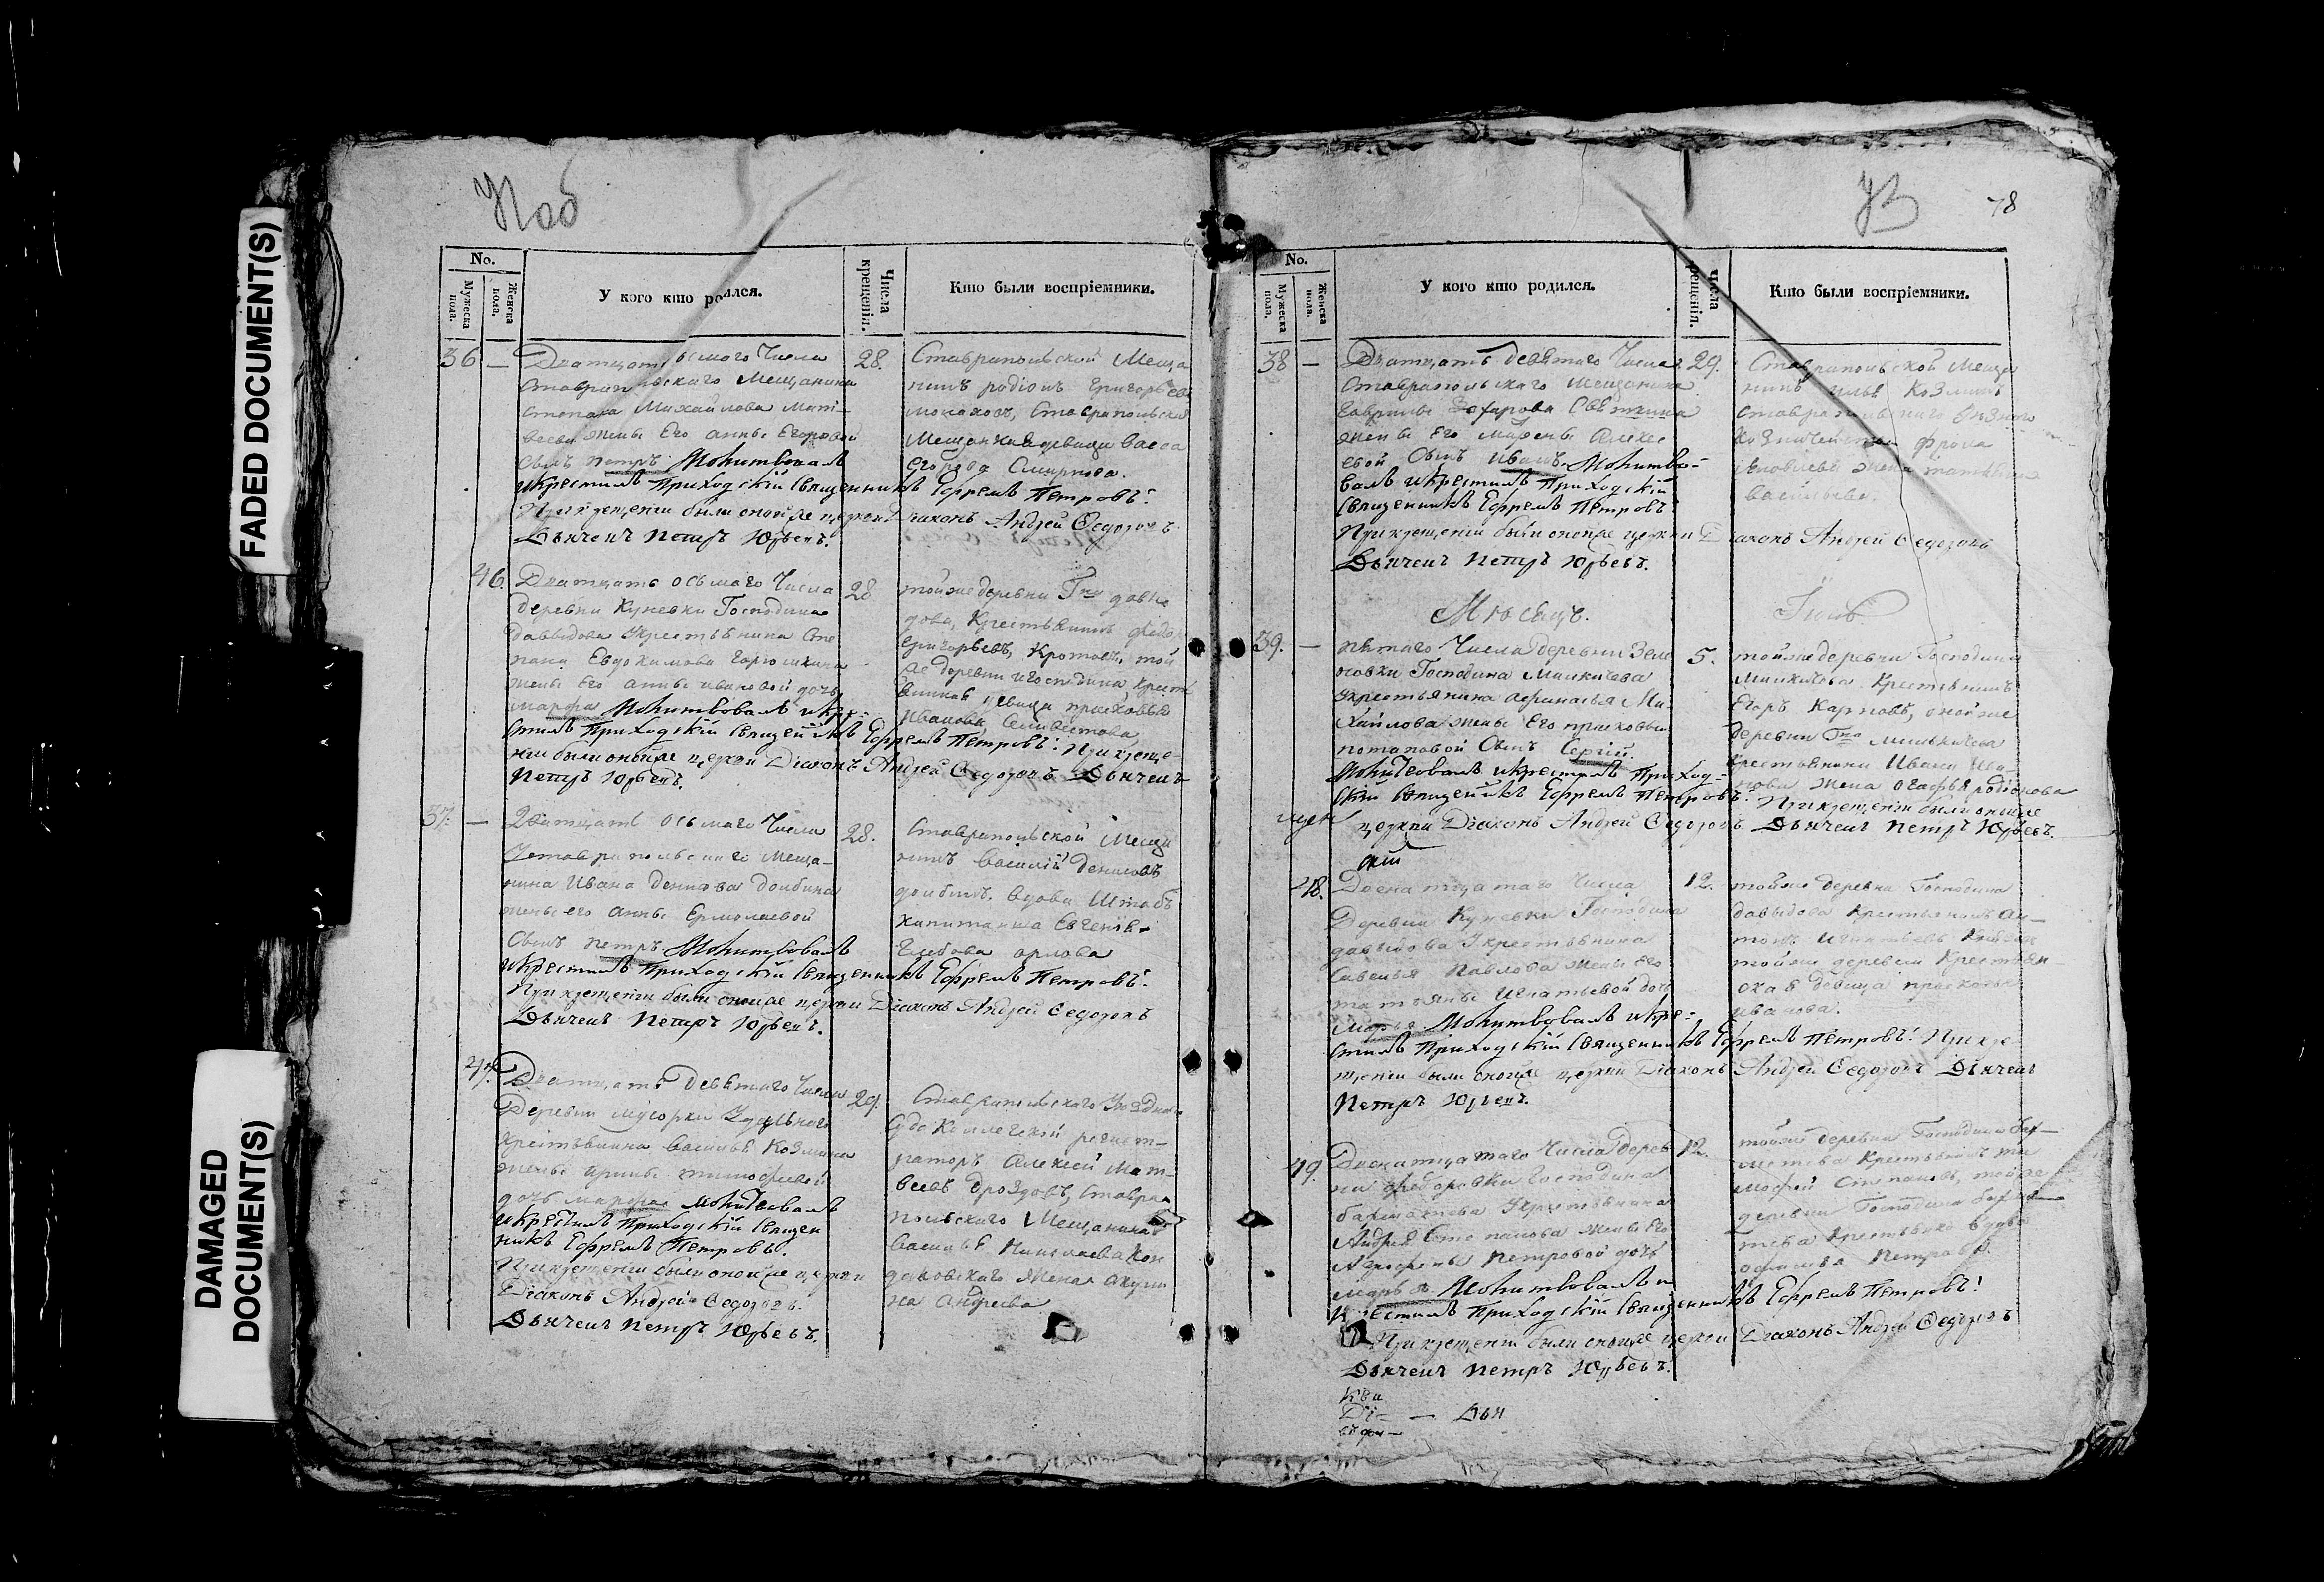 FADED DOCUMENT(S)
DAMAGED
DOCUMENT(S)
78
No.
Мужеска пола.
Женска пола.
У кого кто родился.
Числа крещенія.
Кто были воспріемники.
36 —
Дватцать осьмаго Числа
Ставропольскаго Мещанина
Михайлова Мат-
веева жены Его анны Егоровой
Сынъ петръ. Молитвовалъ
икрестилъ Приходскій Священникъ Ефремъ Петровъ:
Прикрещеніи были оной же церкви Діаконъ Андрей Ѳедоровъ
Дьячекъ Петръ Юрьевъ.
28.
Ставропольской Меща
нинъ родіонъ Григорьевъ
Ставропольска
Мещанка девица Васса
Егорова Смирнова.
46.
Дватцать осьмаго Числа
деревни Куневки Господина
Давыдова Крестьянина Сте
пана Евдокимова
жены Его анны ивановой дочь
марфа Молитвовалъ икре-
стилъ Приходскій Священникъ Ефремъ Петровъ: Прикреще-
ніи были оной же церкви Діаконъ Андрей Ѳедоровъ Дьячекъ
Петръ Юрьевъ.
28
тойже деревни Гна давы
дова, Крестьянинъ Федоръ
Григорьевъ, той
же деревни игосподина крестъ
янина девица прасковья
Иванова
37. —
Дватцать осьмаго Числа
Ставропольскаго Меща-
нина Ивана Денисова долбина
жены его анны Ермолаевой
Сынъ петръ. Молитвовалъ
икрестилъ Приходскій Священникъ Ефремъ Петровъ:
Прикрещеніи были оной же церкви Діаконъ Андрей Ѳедоровъ
Дьячекъ Петръ Юрьевъ.
28.
Ставропольской Меща
нинъ Василій Денисовъ
долбинъ. вдова Штабъ
капитанша Евгенія
Глебова орлова
47.
Дватцать Девятаго Числа
Деревни мусорки Удельнаго
Крестьянина Василья Козмина
жены ирины тимофеевой
дочь марфа Молитвовалъ
икрестилъ Приходскій Священ
никъ Ефремъ Петровъ.
Прикрещеніи были оной же церкви
Діаконъ Андрей Ѳедоровъ.
Дьячекъ Петръ Юрьевъ.
29.
Ставропольскаго Уезднаго
Суда Коллежской регист-
раторъ Алексей Мат-
веевъ Дроздовъ, Ставро
польскаго Мещанина
Василья Николаева Кон
даковскаго жена акули
на андреева
No.
Мужеска пола.
Женска пола.
У кого кто родился.
Числа крещенія.
Кто были воспріемники.
38 —
Дватцать девятаго Числа
Ставропольскаго Мещанина
Гаврилы Захарова
жены Его марфы Алексе
евой Сынъ иванъ. Молитво-
валъ икрестилъ Приходскій
Священникъ Ефремъ Петровъ
Прикрещеніи были оной же церкви Діаконъ Андрей Ѳедоровъ
Дьячекъ Петръ Юрьевъ.
29.
Ставропольской Меща
нинъ илья Козминъ
Ставропольскаго
Казначейства фрола
жена татьяна
васильева.
Месяцъ.
39. —
пятаго Числа деревни Зеле
новки Господина Милкичева
Крестьянина афанасья Ми-
хайлова жены Его прасковьи
потаповой Сынъ Сергій.
Молитвовалъ икрестилъ Приход-
скій Священникъ Ефремъ Петровъ. Прикрещеніи были оной же
церкви Діаконъ Андрей Ѳедоровъ Дьячекъ Петръ Юрьевъ.
5.
тойже деревни Господина
Милкичева Крестьянинъ
Егоръ Карповъ, оной же
деревни Гна Милкичева
крестьянина Ивана Ива-
нова жена агафья родіонова
48.
Двенатцатаго Числа
Деревни Куневки Господина
давыдова Крестьянина
Савелья Павлова жены Его
татьяны Игнатьевой дочь
Марья Молитвовалъ икре-
стилъ Приходскій Священникъ Ефремъ Петровъ: Прикре
щеніи были оной же церкви Діаконъ Андрей Ѳедоровъ Дьячекъ
Петръ Юрьевъ.
12.
тойже деревни Господина
давыдова Крестьянинъ Ан-
тонъ Игнатьевъ
тойже деревни Крестьян-
ская девица прасковья
иванова.
49.
Двенатцатаго Числа Дерев
ни федоровки Господина
бахметева Крестьянина
Андрея Степанова жены Его
Аграфены Петровой дочь
марья. Молитвовалъ и
крестилъ Приходскій Священникъ Ефремъ Петровъ!
Прикрещеніи были оной же церкви Діаконъ Андрей Ѳедоровъ
Дьячекъ Петръ Юрьевъ.
12.
тойже деревни Господина бах-
метева Крестьянинъ ти
мофей Степановъ, той же
деревни Господина бахме-
тева Крестьянка вдова
Петрова.